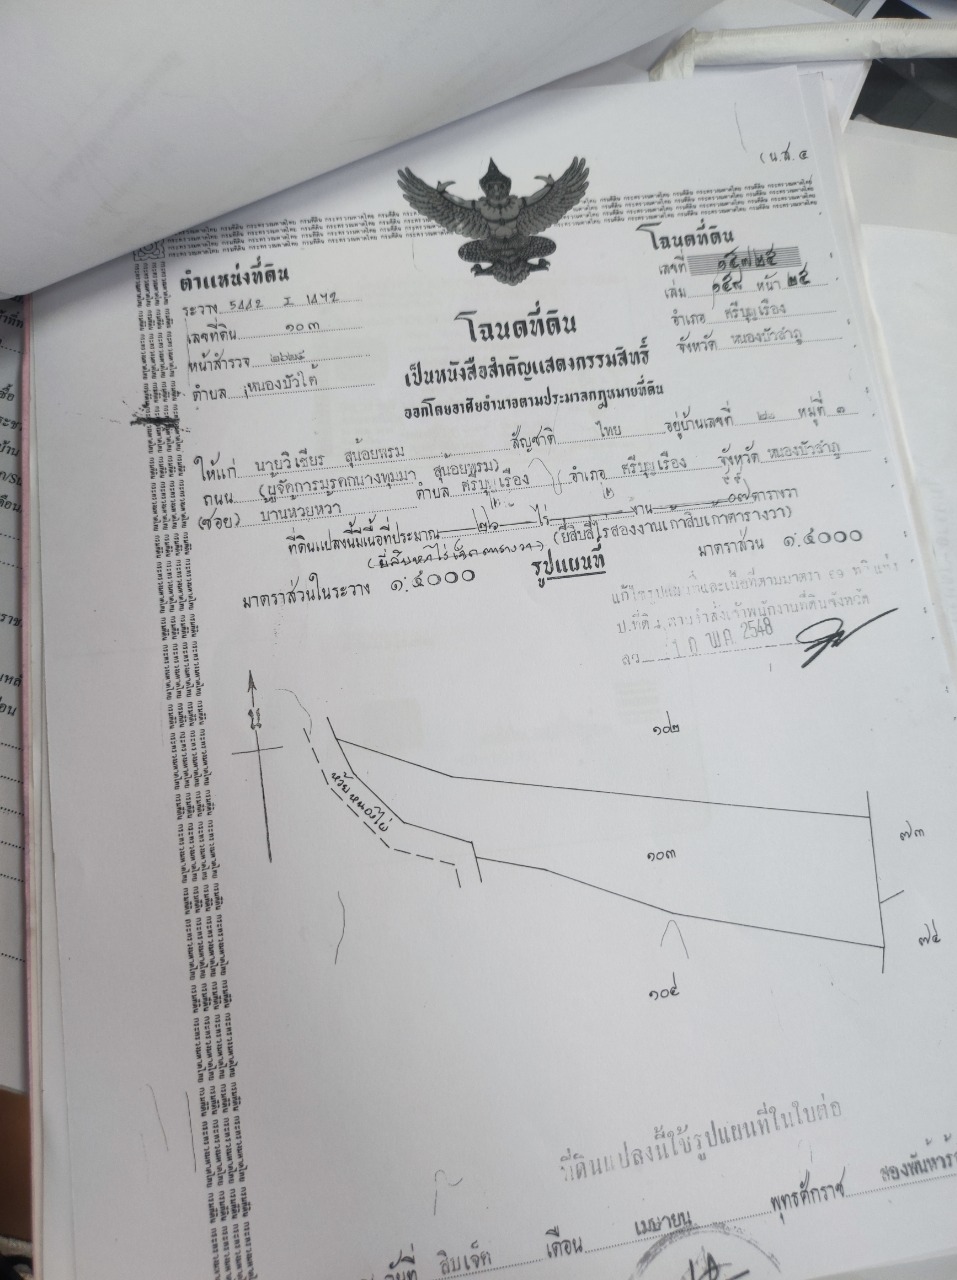 (น.ส. ๔
ตำแหน่งที่ดิน
ระวาง 5442 I 1472
เลขที่ดิน ๑๐๓
หน้าสำรวจ
ตำบล หนองบัวใต้
โฉนดที่ดิน
เลขที่ ๑๕๗๒๕
เล่ม ๑๕๘ หน้า ๒๕
อำเภอ ศรีบุญเรือง
จังหวัด หนองบัวลำภู
โฉนดที่ดิน
เป็นหนังสือสำคัญแสดงกรรมสิทธิ์
ออกโดยอาศัยอำนาจตามประมวลกฎหมายที่ดิน
ให้แก่ นายวิเชียร สุน้อยพรม สัญชาติ ไทย อยู่บ้านเลขที่ ๒๐ หมู่ที่ ๑
ถนน (ผู้จัดการมรดกนางทุมมา สุน้อยพรม)
(ซอย) บ้านห้วยหว้า ตำบล ศรีบุญเรือง อำเภอ ศรีบุญเรือง จังหวัด หนองบัวลำภู
ที่ดินแปลงนี้มีเนื้อที่ประมาณ ๒๖ ไร่ งาน ๐๗ ตารางวา
(ยี่สิบสี่ไร่สองงานเก้าสิบเก้าตารางวา)
(ยี่สิบหกไร่เจ็ดตารางวา)
รูปแผนที่
มาตราส่วนในระวาง ๑:๕๐๐๐
มาตราส่วน ๑:๕๐๐๐
แก้ไขรูปแผนที่และเนื้อที่ตามมาตรา ๖๑ ทวิ แห่ง
ป.ที่ดิน ตามคำสั่งเจ้าพนักงานที่ดินจังหวัด
ลว 1 0 พ.ค. 2548
๑๐๒
ห้วยหนองไผ่
๗๓
๑๐๓
๗๔
๑๐๔
ที่ดินแปลงนี้ใช้รูปแผนที่ในใบต่อ
วันที่ สิบเจ็ด เดือน เมษายน พุทธศักราช สองพันห้าร้